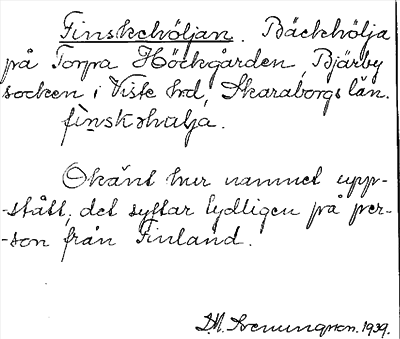 Finskehöljan. Bäckhölja
på Torpa Höckgården, Bjärby
socken i Viste hrd, Skaraborgs län.
finskəhalja.
Okänt hur namnet upp-
-stått, det syftar tydligen på per-
-son från Finland.
D.M. 1939.